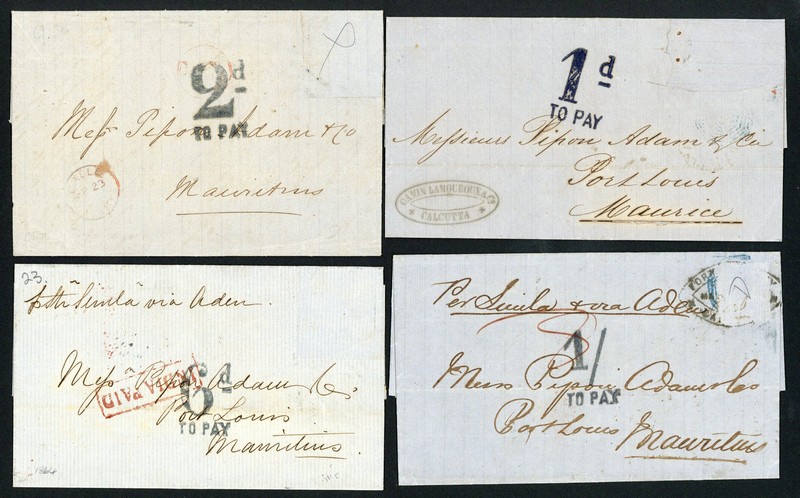 2d
TO PAY
Messrs Pipon Adam & Co
Mauritius
23
1d
TO PAY
Messieurs Pipon Adam & Cie
Port Louis
Maurice
CALCUTTA
23.
via Aden
INDIA PAID
6d
TO PAY
Messrs Pipon Adam & Co.
Port Louis
Mauritius
1864
Per Simla & via Aden
1/
TO PAY
Messrs Pipon Adam & Co
Port Louis Mauritius